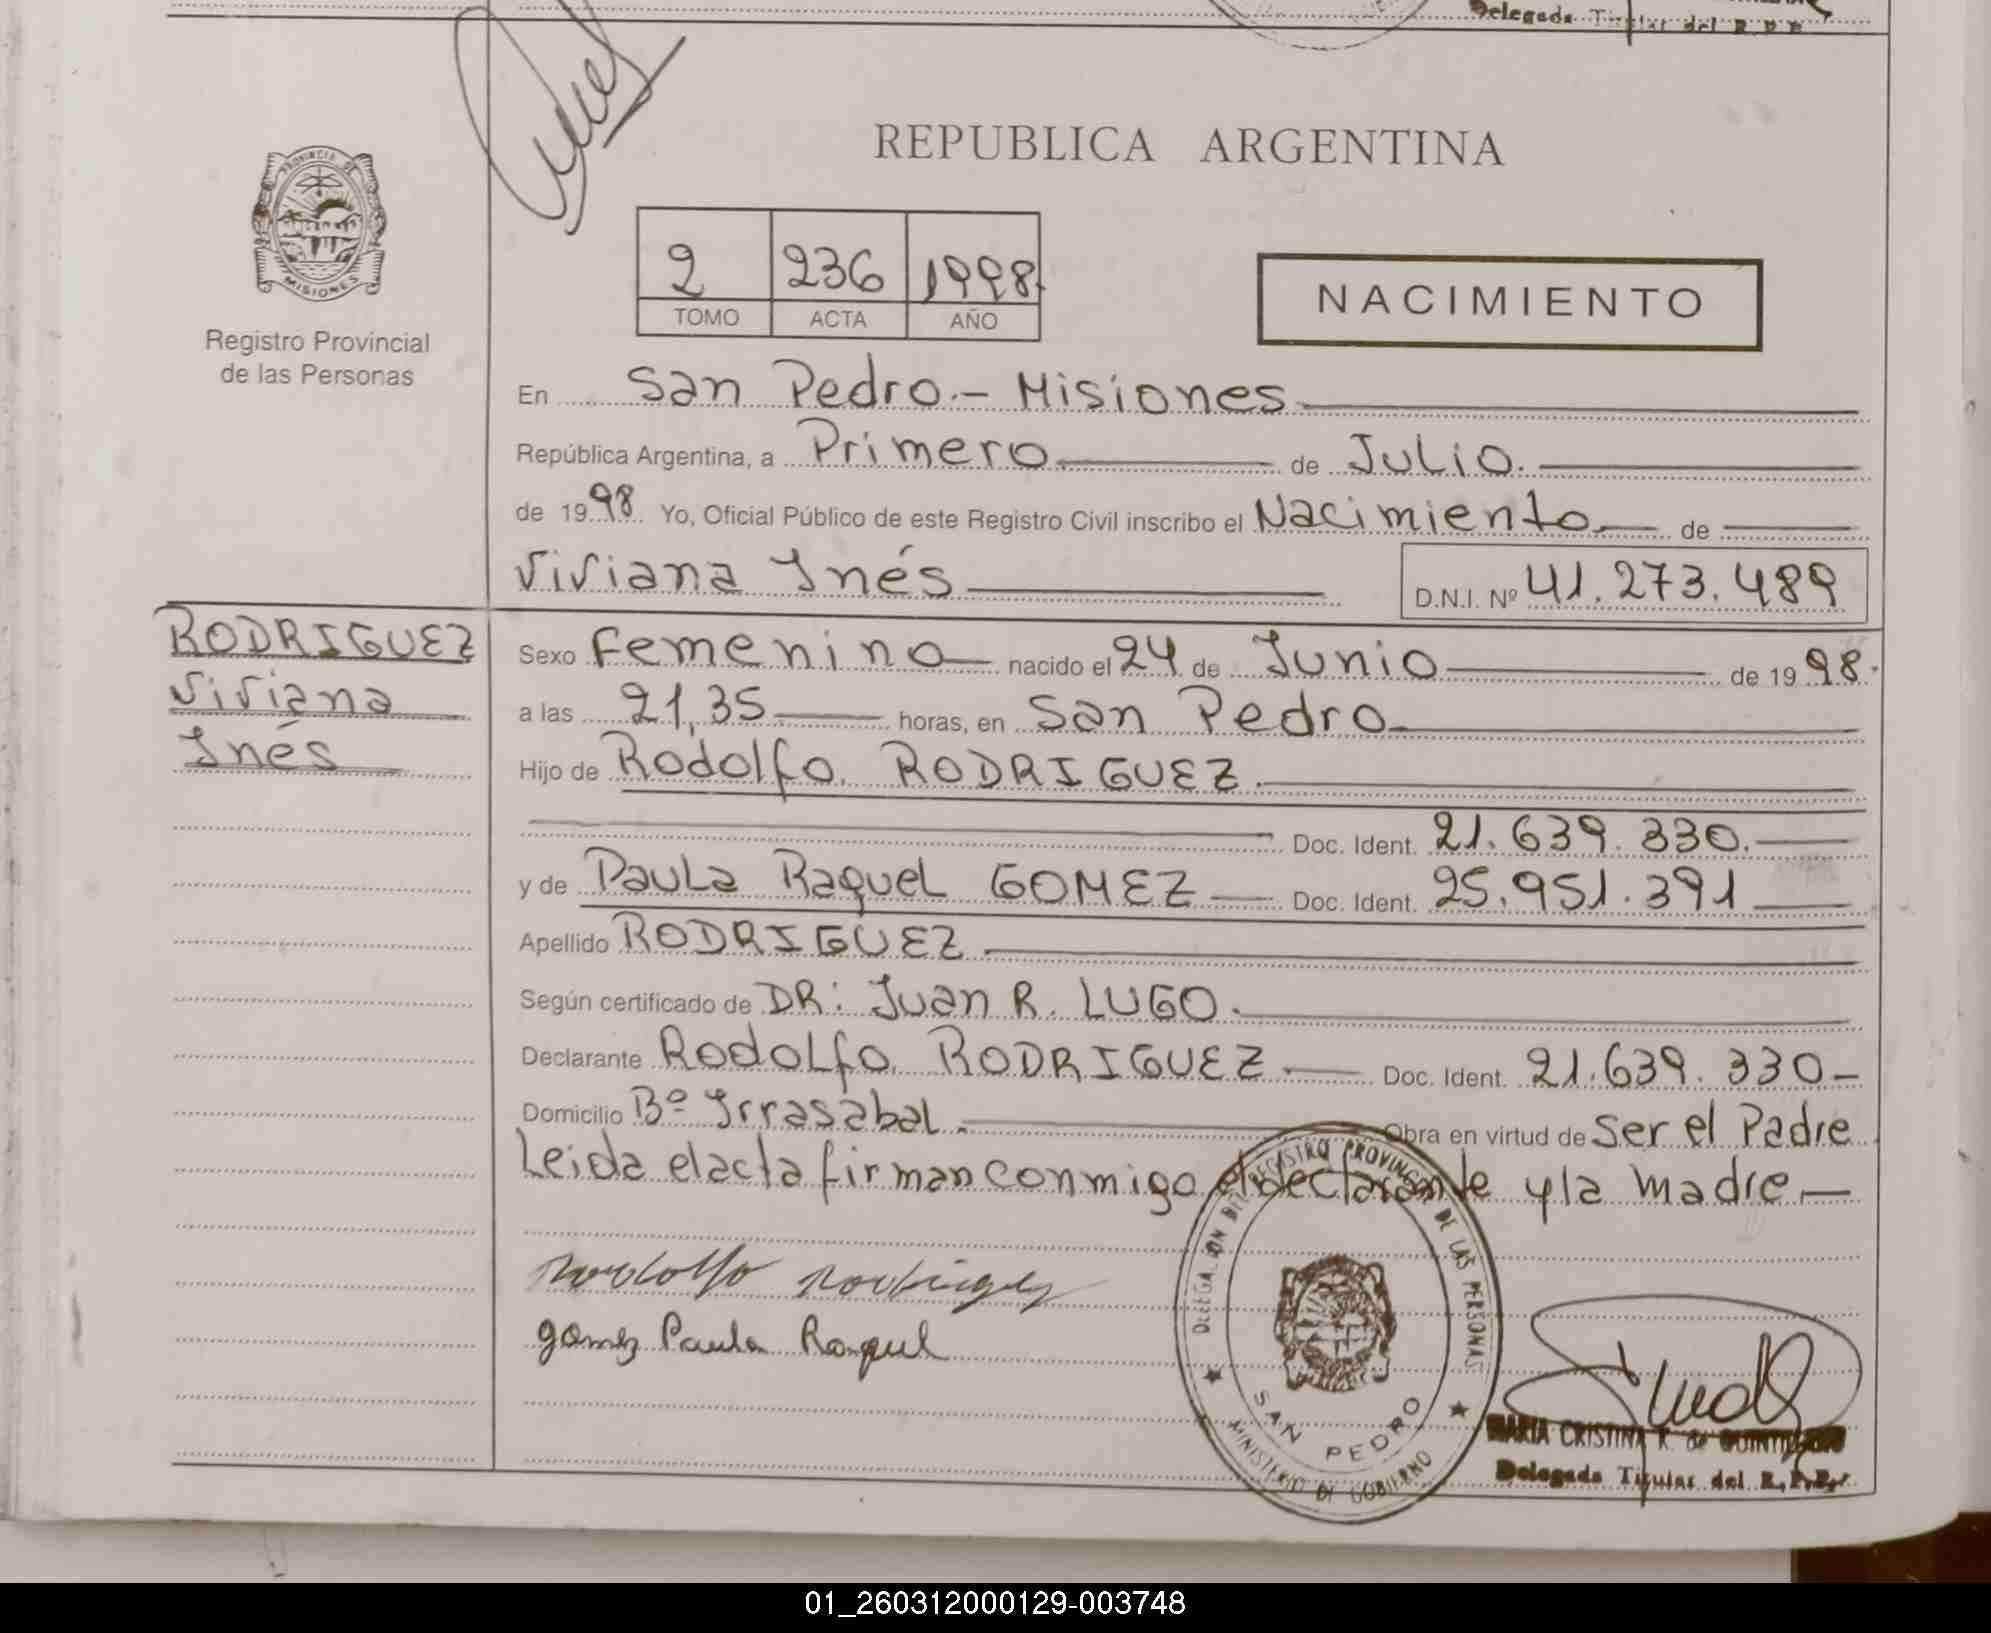 Delegada Titular del R.P.P.
REPUBLICA ARGENTINA
PROVINCIA DE
MISIONES
Registro Provincial
de las Personas
2 236 1998
TOMO ACTA AÑO
NACIMIENTO
En San Pedro.- Misiones
República Argentina, a Primero de Julio.
de 1998 Yo, Oficial Público de este Registro Civil inscribo el Nacimiento de
Viviana Inés D.N.I. Nº 41.273.489
RODRIGUEZ
Viviana
Inés
Sexo Femenino nacido el 24 de Junio de 1998.
a las 21,35 horas, en San Pedro
Hijo de Rodolfo RODRIGUEZ.
Doc. Ident. 21.639.330.
y de Paula Raquel GOMEZ Doc. Ident. 25.951.391
Apellido RODRIGUEZ
Según certificado de DR: Juan R. LUGO.
Declarante Rodolfo RODRIGUEZ Doc. Ident. 21.639.330
Domicilio Bº Irrasabal. Obra en virtud de Ser el Padre
Leida el acta firman conmigo el declarante y la madre
Rodolfo Rodriguez
Gomez Paula Raquel
DELEGACION DEL REGISTRO PROVINCIAL DE LAS PERSONAS
SAN PEDRO
MINISTERIO DE GOBIERNO
MARIA CRISTINA R. de
Delegada Titular del R.P.P.
01_260312000129-003748